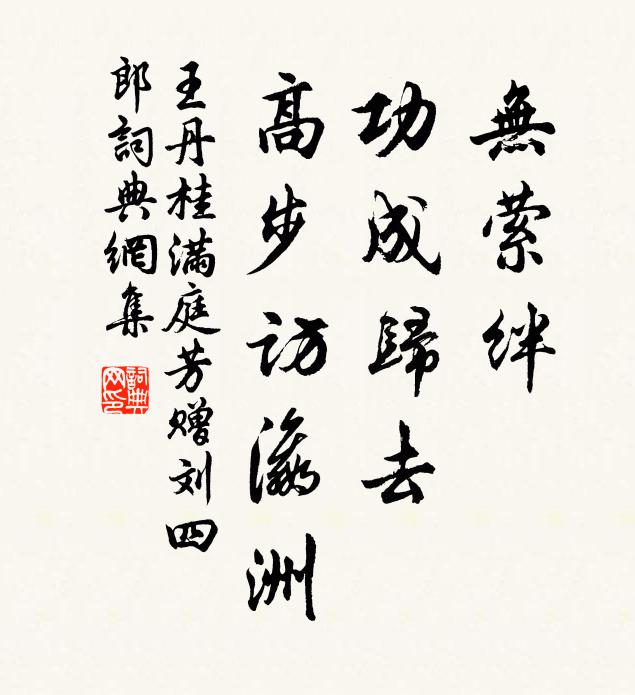 無萦絆
功成歸去
高步訪瀛洲
王丹桂滿庭芳赠刘四
郎詞典網集
詞典
网印